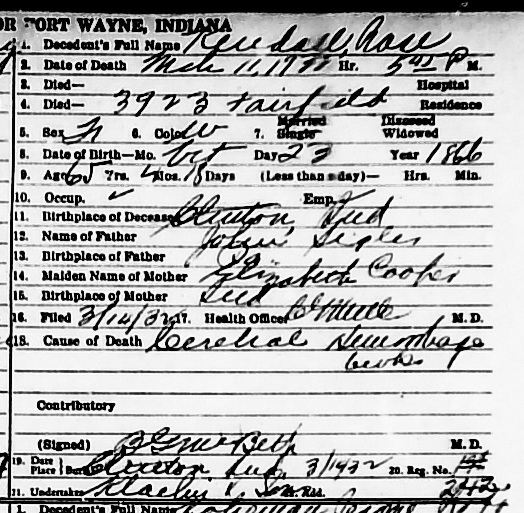 OR FORT WAYNE, INDIANA
1. Decedent's Full Name Kendall, Rose
2. Date of Death Mch 11, 1932 Hr. 5 45 P M.
3. Died— Hospital
4. Died— 3923 Fairfield Residence
5. Sex F 6. Color W 7. Married Single Divorced Widowed
8. Date of Birth—Mo. Oct Day 23 Year 1866
9. Age 65 Yrs. 4 Mos. 18 Days (Less than a day)— Hrs. Min.
10. Occup. ✓ Emp.
11. Birthplace of Deceased Clinton, Ind
12. Name of Father John Sigler
13. Birthplace of Father
14. Maiden Name of Mother Elizabeth Cooper
15. Birthplace of Mother Ind
16. Filed 3/14/32 17. Health Officer M.D.
18. Cause of Death Cerebral Hemorrhage
Contributory
(Signed) B G McBeth M.D.
19. Date Place Burial Clinton Ind, 3/1932 20. Reg. No.
21. Undertaker & Son Add. 242
1. Decedent's Full Name